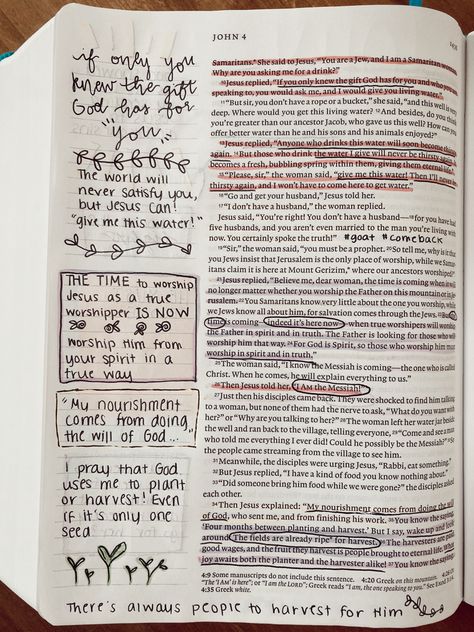 JOHN 4
if only you
knew the gift
God has for
"you"
The world will
never satisfy you,
but Jesus can!
"give me this water!"
THE TIME to worship
Jesus as a true
worshipper IS NOW
worship Him from
your spirit in a
true way
"My nourishment
comes from doing
the will of God..."
I pray that God
uses me to plant
or harvest! Even
if it's only one
seed
Samaritans.* She said to Jesus, "You are a Jew, and I am a Samaritan woman.
Why are you asking me for a drink?"
10Jesus replied, "If you only knew the gift God has for you and who you are
speaking to, you would ask me, and I would give you living water."
11"But sir, you don't have a rope or a bucket," she said, "and this well is very
deep. Where would you get this living water? 12And besides, do you think
you're greater than our ancestor Jacob, who gave us this well? How can you
offer better water than he and his sons and his animals enjoyed?"
13Jesus replied, "Anyone who drinks this water will soon become thirsty
again. 14But those who drink the water I give will never be thirsty again. It
becomes a fresh, bubbling spring within them, giving them eternal life."
15"Please, sir," the woman said, "give me this water! Then I'll never be
thirsty again, and I won't have to come here to get water."
16"Go and get your husband," Jesus told her.
17"I don't have a husband," the woman replied.
Jesus said, "You're right! You don't have a husband—18for you have had
five husbands, and you aren't even married to the man you're living with
now. You certainly spoke the truth!" #goat #comeback
19"Sir," the woman said, "you must be a prophet. 20So tell me, why is it that
you Jews insist that Jerusalem is the only place of worship, while we Samari-
tans claim it is here at Mount Gerizim,* where our ancestors worshiped?"
21Jesus replied, "Believe me, dear woman, the time is coming when it will
no longer matter whether you worship the Father on this mountain or in Je-
rusalem. 22You Samaritans know very little about the one you worship, while
we Jews know all about him, for salvation comes through the Jews. 23But the
time is coming—indeed it's here now—when true worshipers will worship
the Father in spirit and in truth. The Father is looking for those who will
worship him that way. 24For God is Spirit, so those who worship him must
worship in spirit and in truth."
25The woman said, "I know the Messiah is coming—the one who is called
Christ. When he comes, he will explain everything to us."
26Then Jesus told her, "I AM the Messiah!"*
27Just then his disciples came back. They were shocked to find him talking
to a woman, but none of them had the nerve to ask, "What do you want with
her?" or "Why are you talking to her?" 28The woman left her water jar beside
the well and ran back to the village, telling everyone, 29"Come and see a man
who told me everything I ever did! Could he possibly be the Messiah?" 30So the
people came streaming from the village to see him.
31Meanwhile, the disciples were urging Jesus, "Rabbi, eat something."
32But Jesus replied, "I have a kind of food you know nothing about."
33"Did someone bring him food while we were gone?" the disciples asked
each other.
34Then Jesus explained: "My nourishment comes from doing the will
of God, who sent me, and from finishing his work. 35You know the saying,
'Four months between planting and harvest.' But I say, wake up and look
around. The fields are already ripe* for harvest. 36The harvesters are paid
good wages, and the fruit they harvest is people brought to eternal life. What
joy awaits both the planter and the harvester alike! 37You know the saying,
4:9 Some manuscripts do not include this sentence. 4:20 Greek on this mountain. 4:26
Or "The 'I AM' is here"; or "I am the LORD"; Greek reads "I am, the one speaking to you." See Exod 3:14.
4:35 Greek white.
There's always people to harvest for Him